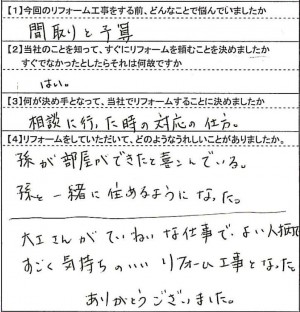 【1】今回のリフォーム工事をする前、どんなことで悩んでいましたか
間取りと予算
【2】当社のことを知って、すぐにリフォームを頼むことを決めましたか
すぐでなかったとしたらそれは何故ですか
はい。
【3】何が決め手となって、当社でリフォームすることに決めましたか
相談に行った時の対応の仕方。
【4】リフォームをしていただいて、どのようなうれしいことがありましたか。
孫が部屋ができたと喜こんでいる。
孫と一緒に住めるようになった。
大工さんがていねいな仕事で、よい人柄で
すごく気持ちのいいリフォーム工事となった
ありがとうございました。